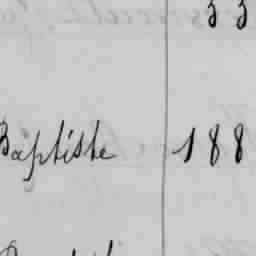 33
Baptiste 188